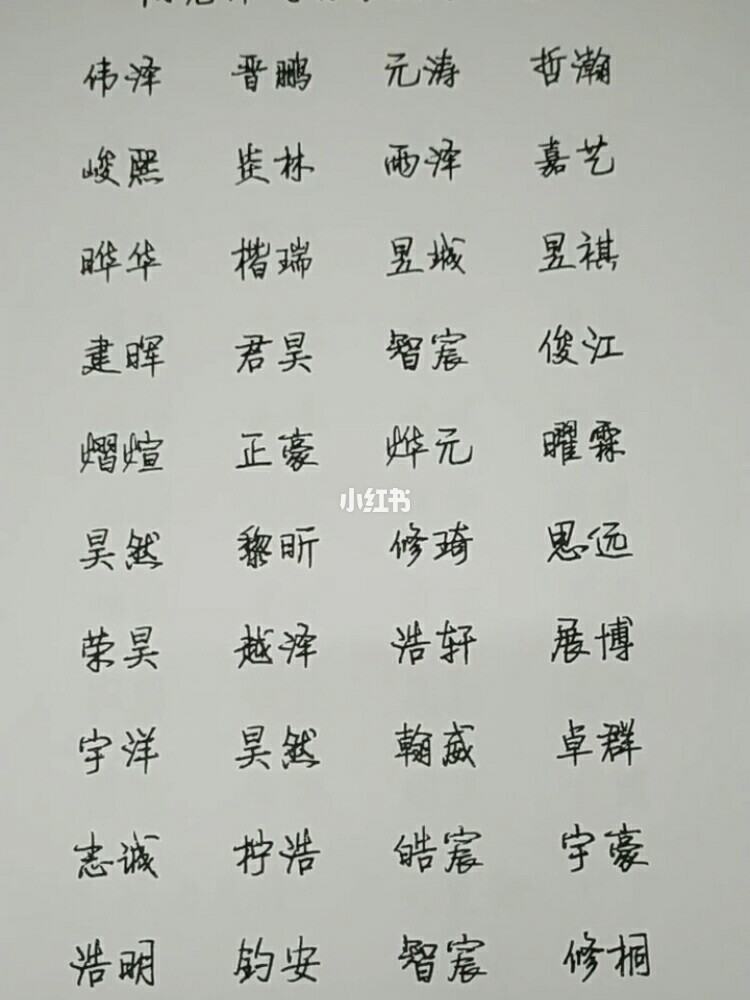 伟泽 晋鹏 元涛 哲瀚
峻熙 林 雨泽 嘉艺
晔华 楷瑞 昱城 昱祺
建晖 君昊 智宸 俊江
熠煊 正豪 烨元 曜霖
小红书
昊然 黎昕 修琦 思远
荣昊 越泽 浩轩 展博
宇洋 昊然 翰威 卓群
志诚 拧浩 皓宸 宇豪
浩明 钧安 智宸 修桐